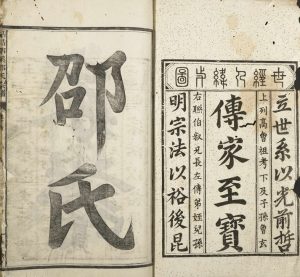 世經人緯斗圖
立世系以光前哲
上列高曾祖考下及子孫曾玄
傳家至寶
右聯伯叔兄長左傳弟姪兒孫
明宗法以裕後昆
邵氏